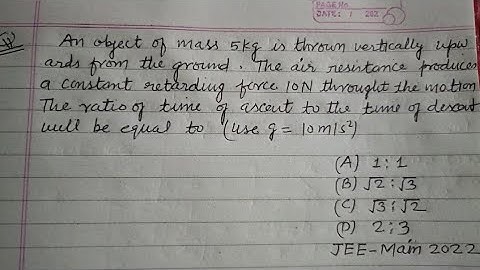 PAGE NO.
DATE: / / 202
An object of mass 5kg is thrown vertically upw
ards from the ground. The air resistance produces
a constant retarding force 10N throught the motion
The ratio of time of ascent to the time of descent
will be equal to (use g = 10 m/s²)
(A) 1 : 1
(B) √2 : √3
(C) √3 : √2
(D) 2 : 3
JEE-Main 2022